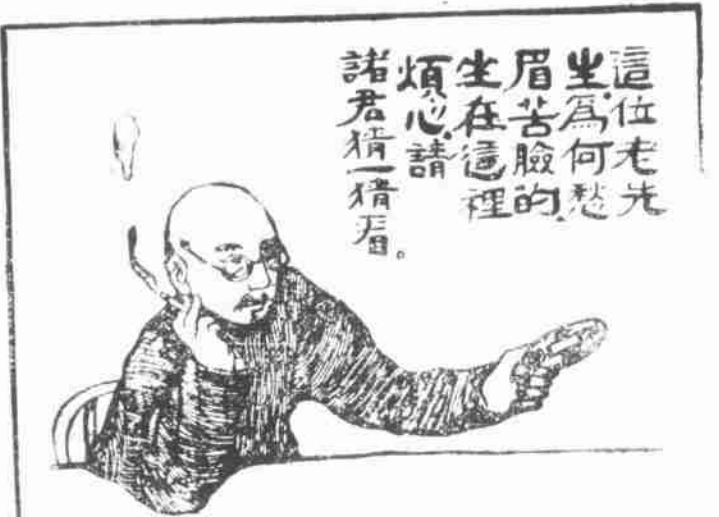 這位老先
生爲何愁
眉苦臉的
坐在這裡
煩心請
諸君猜一猜看。